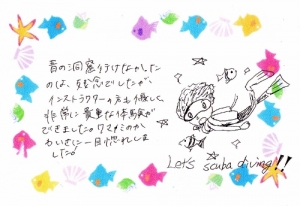 青の洞窟へ行けなかった
のは、残念でしたが、
インストラクターの方も優しく
非常に貴重な体験が
できました。クマノミの
かわいさに一目惚れしま
した。
Let's scuba diving!!